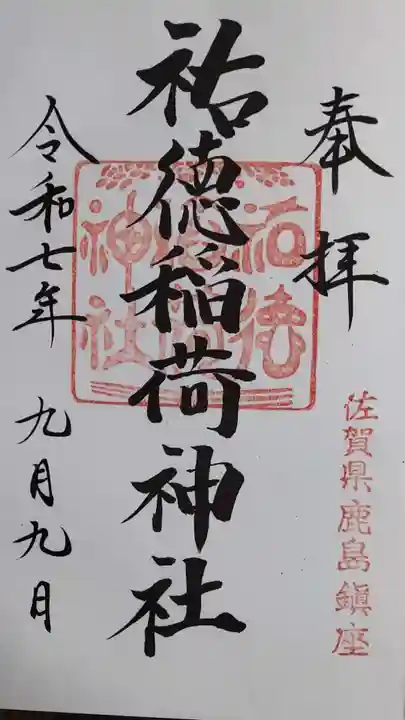 奉拝
佐賀県鹿島鎮座
祐徳稲荷神社
祐徳稲荷神社
令和七年
九月九日